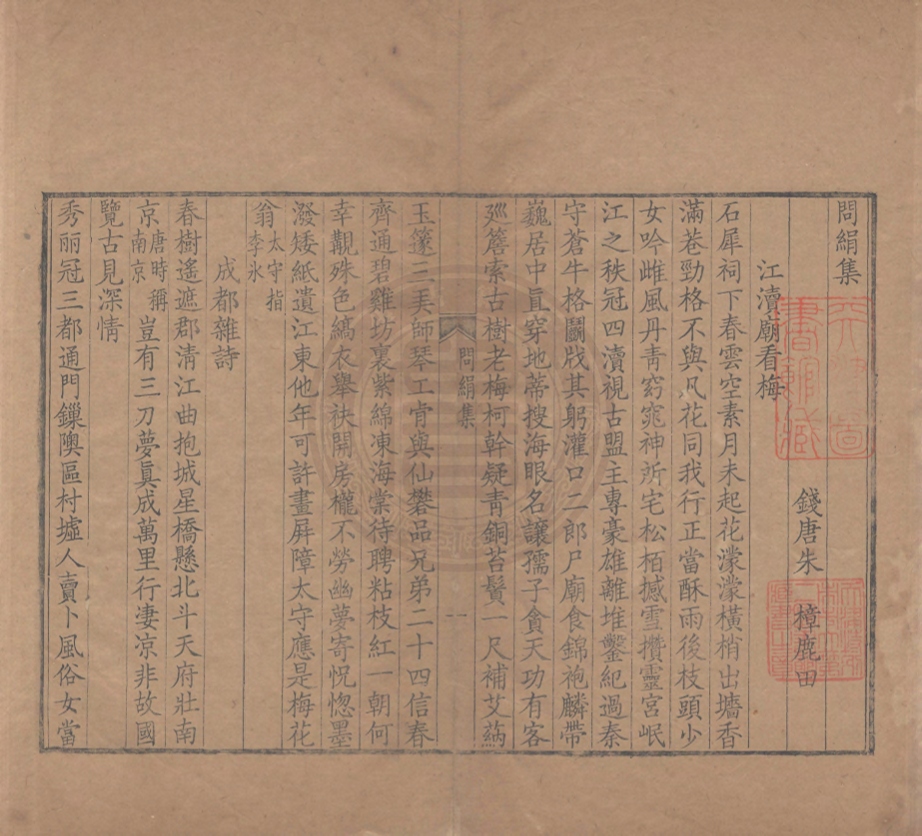 問絹集
錢唐朱　樟鹿田
江瀆廟看梅
石犀祠下春雲空素月未起花濛濛橫梢出墻香
滿巷勁格不與凡花同我行正當酥雨後枝頭少
女吟雌風丹青窈窕神所宅松栢撼雪攢靈宮岷
江之秩冠四瀆視古盟主專豪雄離堆鑿紀過秦
守蒼牛格鬭戕其躬灌口二郎尸廟食錦袍麟帶
巍居中直穿地蒂搜海眼名讓孺子貪天功有客
廵簷索古樹老梅柯幹疑青銅苔鬢一尺補艾蒳
問絹集
一
玉篴三美師琴工肯與仙礬品兄弟二十四信春
齊通碧雞坊裏紫綿凍海棠待聘粘枝紅一朝何
幸觀殊色縞衣舉袂開房櫳不勞幽夢寄怳惚墨
潑矮紙遺江東他年可許畫屛障太守應是梅花
翁太守指李氷
成都雜詩
春樹遙遮郡淸江曲抱城星橋懸北斗天府壯南
京唐時稱南京豈有三刀夢眞成萬里行凄涼非故國
覽古見深情
秀丽冠三都通門鏁隩區村墟人賣卜風俗女當